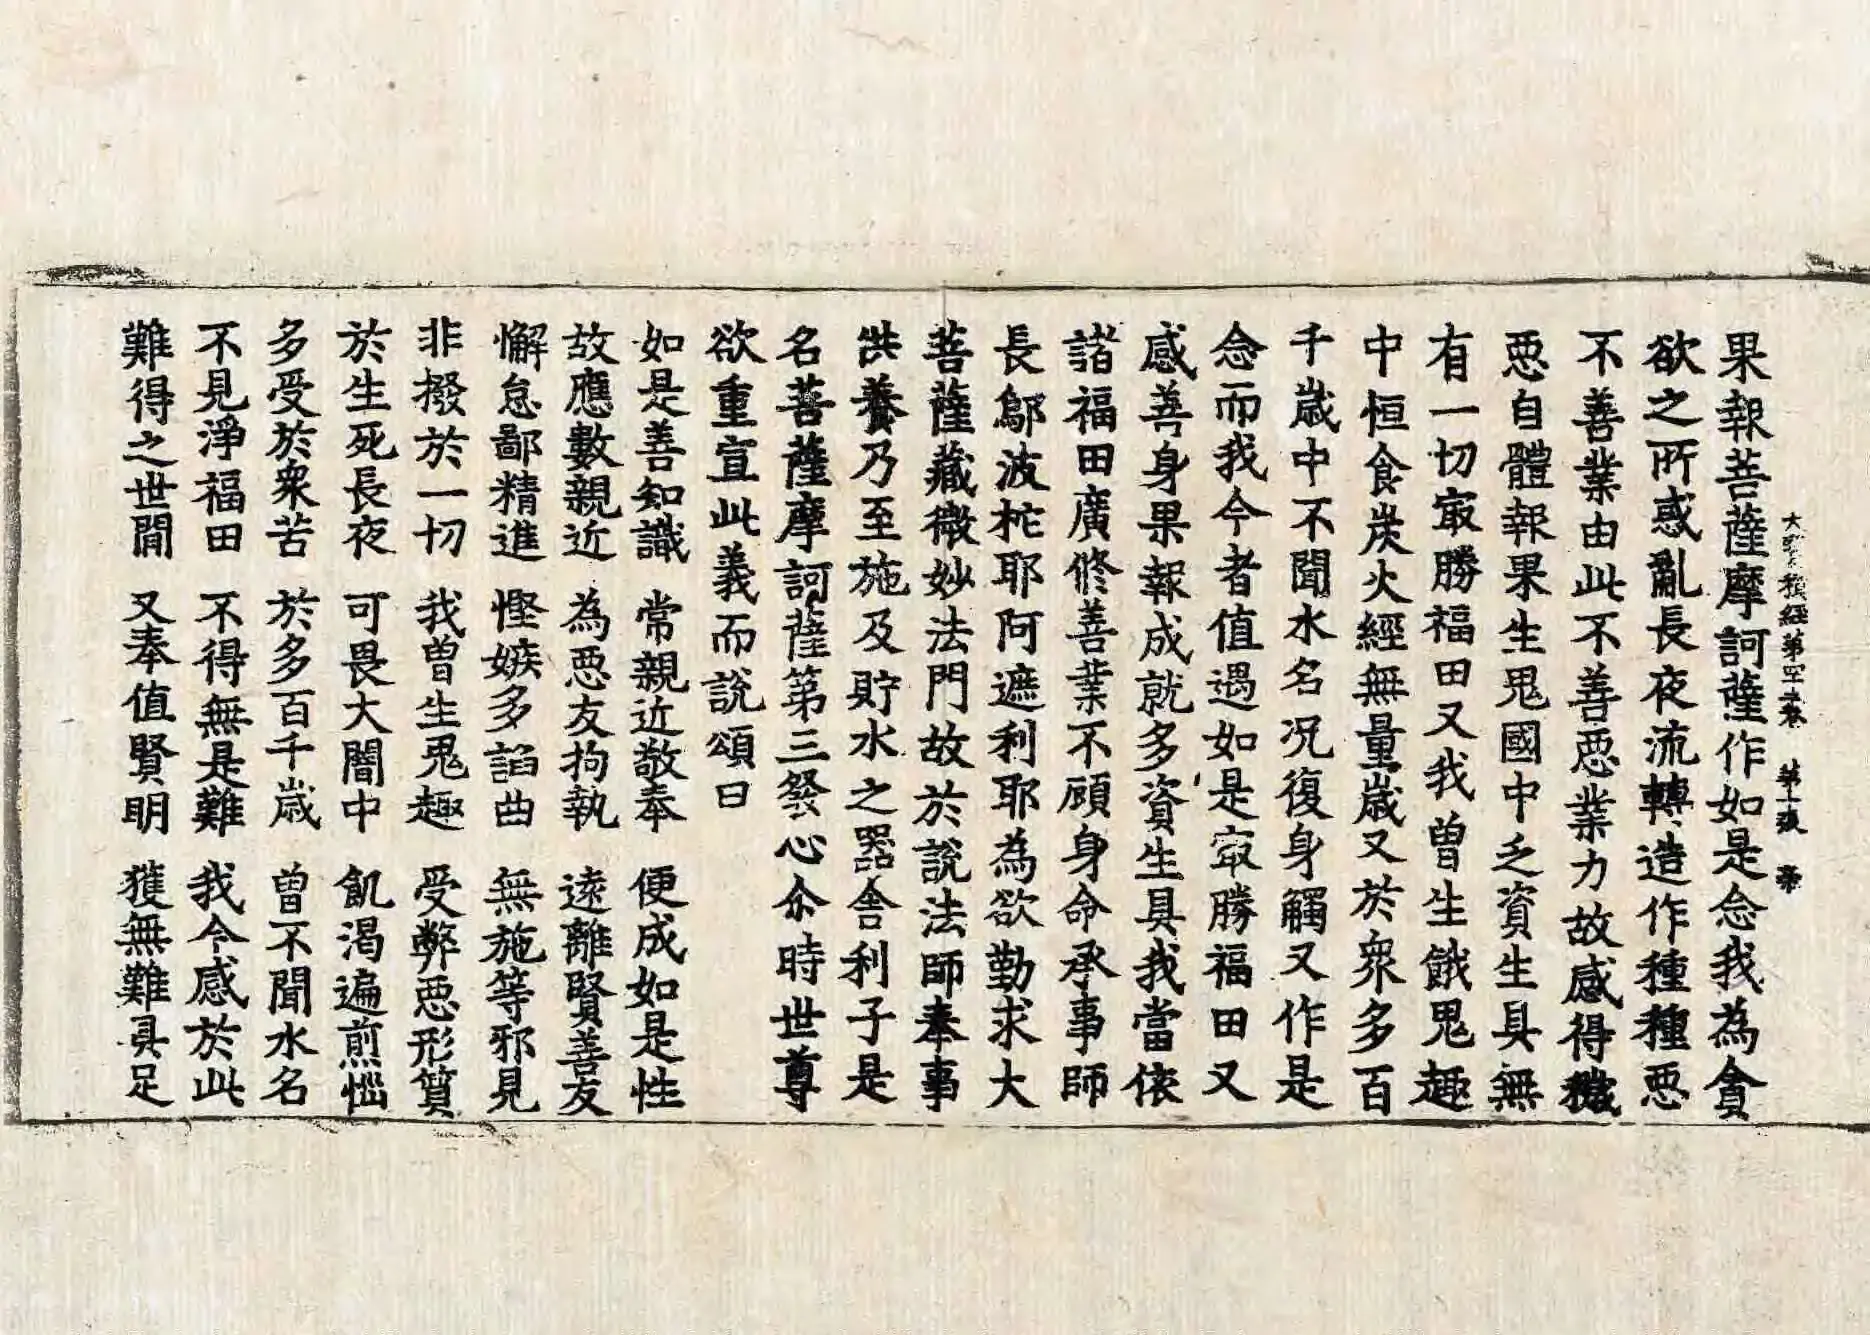 果報菩薩摩訶薩作如是念我為貪
大寶積經第四十五卷 第十張 帝
欲之所惑亂長夜流轉造作種種惡
不善業由此不善惡業力故感得穢
惡自體報果生鬼國中乏資生具無
有一切冣勝福田又我曽生餓鬼趣
中恒食炭火經無量歳又於衆多百
千歳中不聞水名况復身觸又作是
念而我今者值遇如是冣勝福田又
感善身果報成就多資生具我當依
諸福田廣修善業不顧身命承事師
長鄔波柁耶阿遮利耶為欲勤求大
菩薩藏微妙法門故於說法師奉事
供養乃至施及貯水之器舍利子是
名菩薩摩訶薩第三發心尒時世尊
欲重宣此義而說頌曰
如是善知識 常親近敬奉 便成如是性
故應數親近 為惡友拘執 遠離賢善友
懈怠鄙精進 慳嫉多諂曲 無施等邪見
非撥於一切 我曽生鬼趣 受弊惡形質
於生死長夜 可畏大闇中 飢渴遍煎惱
多受於衆苦 於多百千歳 曽不聞水名
不見淨福田 不得無是難 我今感於此
難得之世間 又奉值賢明 獲無難具足